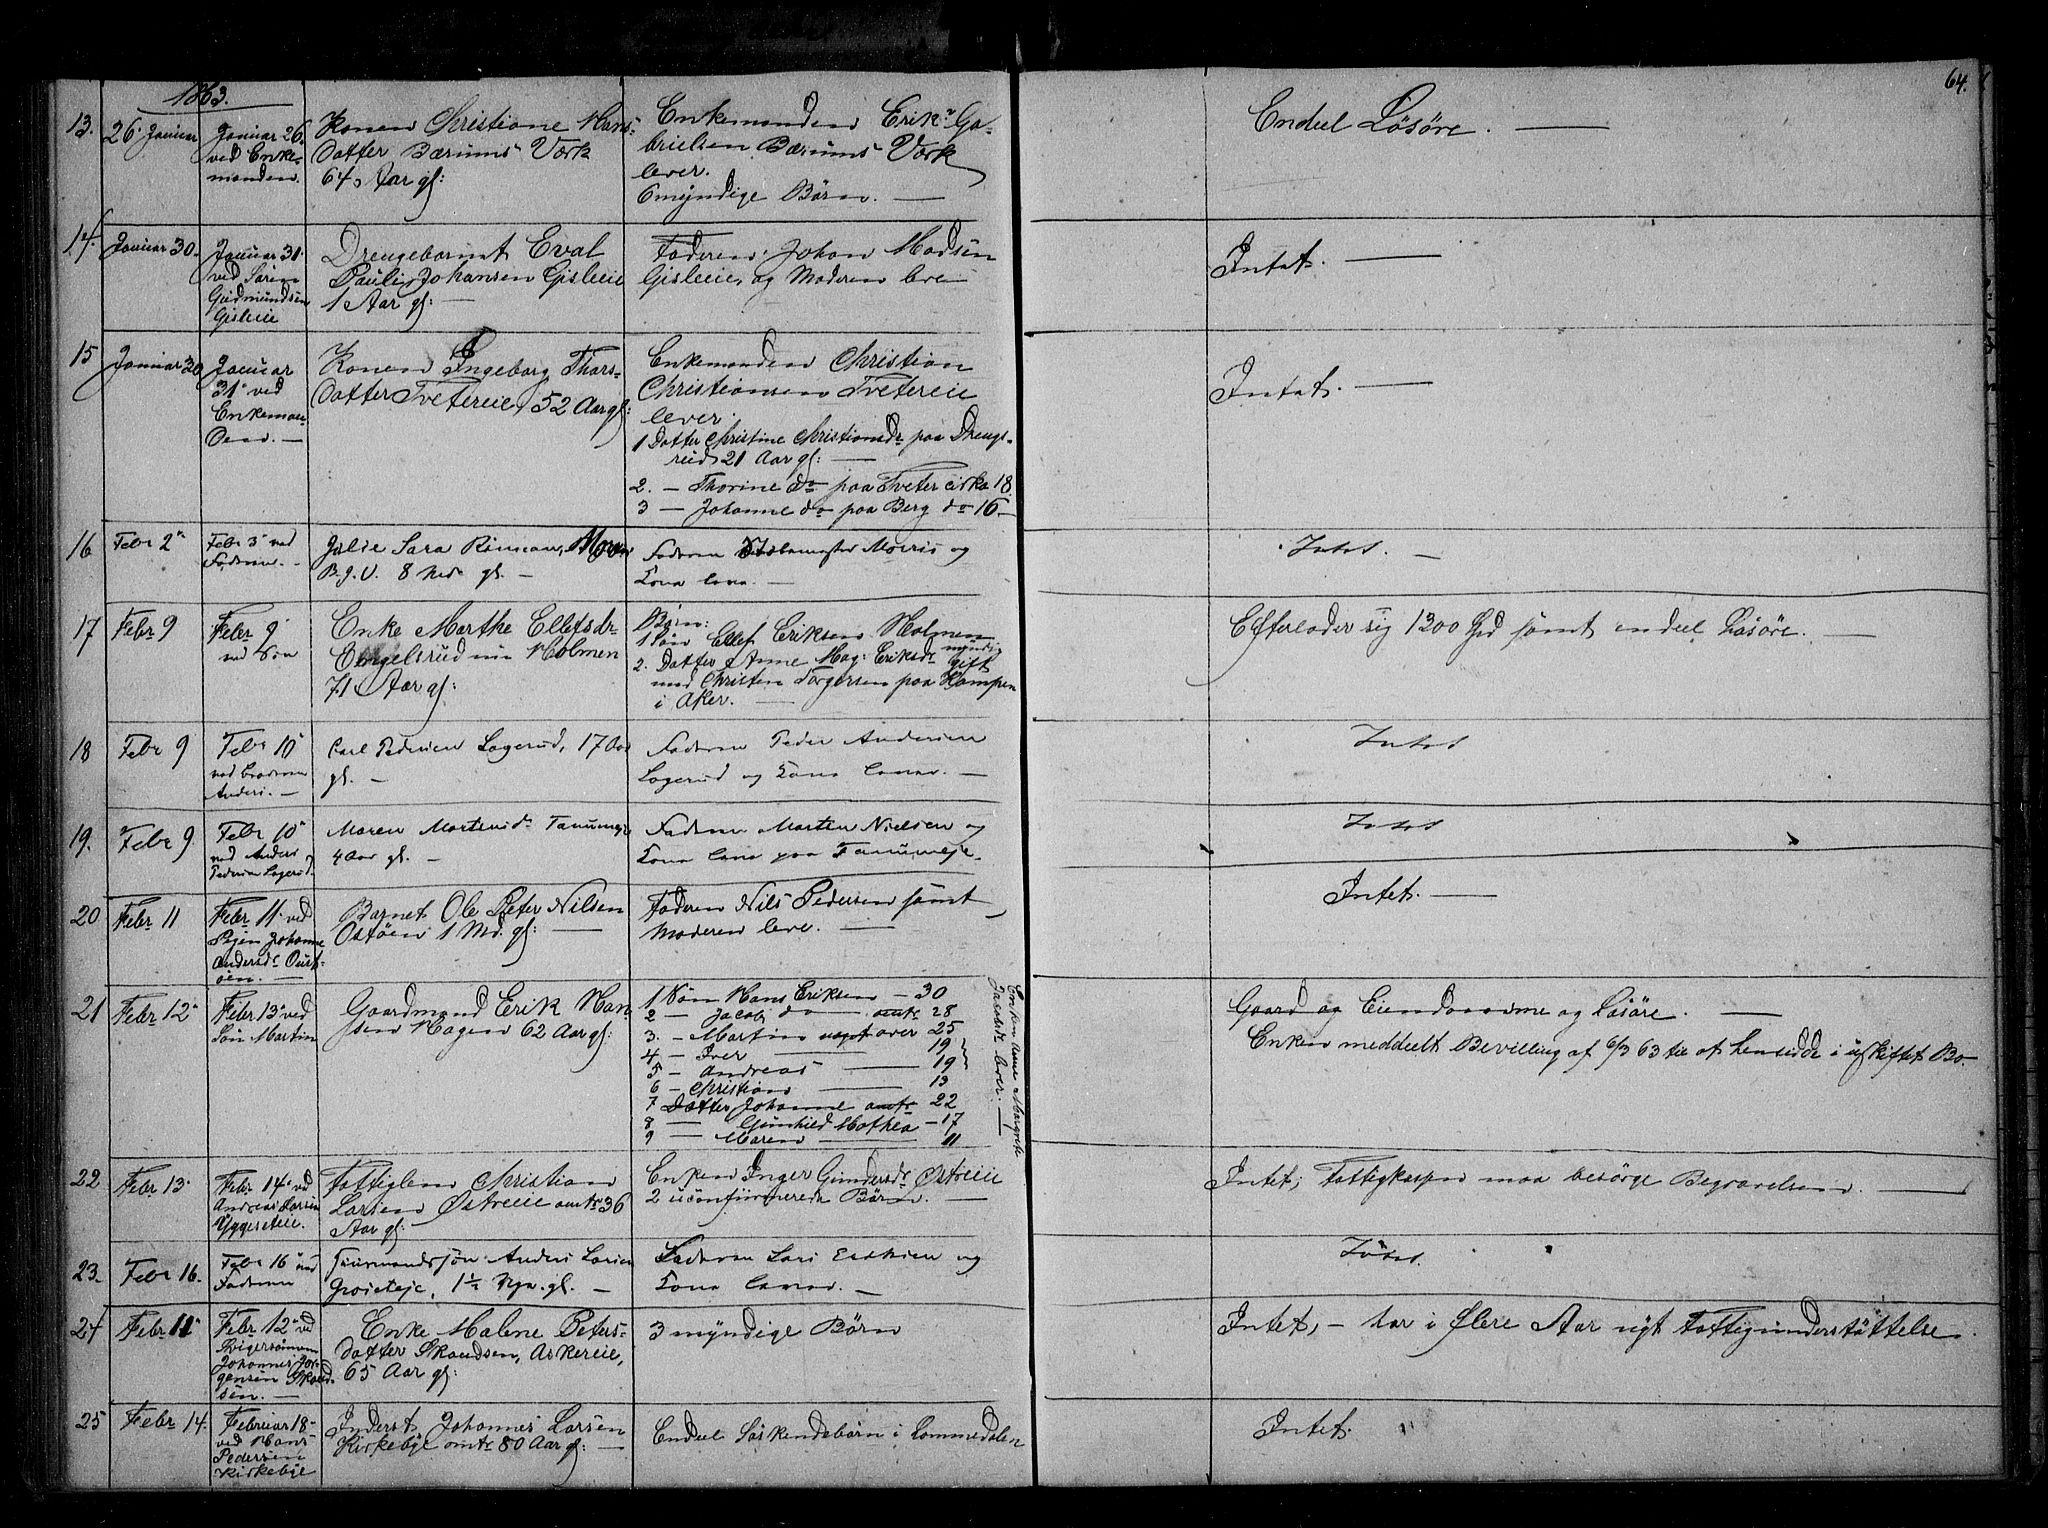 64.
1863.
13.
26. Januar
Januar 26.
ved Enke-
manden.
Konen Christiane Hans-
datter Bærums Værk
64 Aar gl:
Enkemanden Erik Ga-
brielsen Bærums Værk
lever.
6 myndige Børn. —
Endeel Løsøre. —
14.
Januar 30.
Januar 31.
ved Søren
Gudmundsen
Gisleeie
Drengebarnet Eval
Pauli Johansen Gisleeie
1 Aar gl: —
Faderen Johan Madsen
Gisleeie, og Moderen leve —
Intet. —
15
Januar 30
Januar
31 ved
Enkeman-
den. —
Konen Ingeborg Thors-
datter Tvetereie, 52 Aar gl:
Enkemanden Christian
Christiansen Tvetereie
lever.
1 Datter Christine Christiansdr paa Drengs-
rud 21 Aar gl: —
2. — Thorine do paa Tveter cirka 18
3 — Johanne do paa Berg do 16 —
Intet. —
16
Febr 2
Febr 3 ved
Faderen. —
Julie Sara
8 gl. —
Faderen Morris og
Kone lever. —
Intet. —
17
Febr 9
Febr 9
ved Søn
Enke Marthe Ellefsdr
Engelsrud nu Holmen
71 Aar gl:
Børn:
1 Søn Ellef Eriksen Holmen
myndig
2. Datter Anne Mag: Eriksdr gift
med Christen Torgersen paa Kampen
i Aker. —
Efterlader sig 1300 Spd samt endeel Løsøre. —
18
Febr 9
Febr 10
ved Broderen
Anders. —
Carl Pedersen Lagerud, 17 Aar
gl. —
Faderen Peder Andersen
Lagerud og Kone lever. —
Intet
19.
Febr 9.
Febr 10
ved Anders
Pedersen Lagerud.
Maren Martinsdr Tanumeje
4 Aar gl. —
Faderen Morten Nielsen og
Kone lever paa Tanumeje.
Intet
20
Febr 11
Febr 11 ved
Pigen Johanne
Andersdr Oust-
øen. —
Barnet Ole Peter Nilsen
Ostøen 1 Md. gl: —
Faderen Nils Pedersen samt
Moderen leve. —
Intet. —
21
Febr 12
Febr 13 ved
Søn Martin
Gaardmand Erik Han-
sen Hagen 62 Aar gl:
1 Søn Hans Eriksen — 30
2 — Jacob do — omtr 28
3. — Martin noget over 25
4 — Iver — 19
5 — Andreas — 19
6 — Christian — 13
7 Datter Johanne omtr 22
8 — Gunhild Mathea — 17
9 — Maren — 11
Enken Anne Margrethe
Jacobsdr lever. —
Gaard og Eiendomme og Løsøre. —
Enken meddeelt Bevilling af 6/3 63 til at hensidde i uskiftet Bo —
22
Febr 13
Febr 14 ved
Andreas Larsen
Yggeseteie.
Fattiglem Christian
Larsen Østreeie omtr 36
Aar gl:
Enken Inger Gundersdr Østreeie
2 uconfirmerede Børn. —
Intet; Fattigkassen maa besørge Begravelsen. —
23.
Febr 16.
Febr 16 ved
Faderen
Huusmandssøn Anders Larsen
1½ gl. —
Faderen Lars og
Kone lever. —
Intet.
24
Febr 11
Febr 12 ved
Svigersønnen
Johannes Jør-
gensen Skaud-
sen. —
Enke Malene Peters-
datter Skaudsen, Askereie,
65 Aar gl:
3 myndige Børn
Intet, — har i flere Aar nydt Fattigunderstøttelse.
25
Febr 14.
Februar 18
ved Hans
Pedersen
Kirkebye
Inderst Johannes Larsen
Kirkebye omtr 80 Aar gl: —
Endeel Søskendebørn i Lommedalen
Intet.